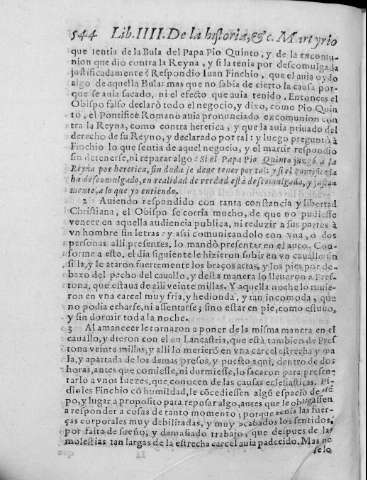 544 Lib. IIII. De la historia, &c. Martyrio
que sentia de la Bula del Papa Pio Quinto, y de la excomu-
nion que dio contra la Reyna, y si la tenia por descomulgada
justificadamente? Respondio Iuan Finchio, que el auia oydo
algo de aquella Bula: mas que no sabia de cierto la causa por-
que se auia sacado, ni el efeto que auia tenido. Entonces el
Obispo falso declarò todo el negocio, y dixo, como Pio Quin
to, el Pontifice Romano auia pronunciado excomunion con
tra la Reyna, como contra heretica, y que la auia priuado del
derecho de su Reyno, y declarado por tal: y luego preguntò à
Finchio lo que sentia de aquel negocio, y el martir respondio
sin detenerse, ni reparar algo: Si el Papa Pio Quinto juzgò a la
Reyna por heretica, sin duda se deue tener por tal: y si el pontifice la
ha descomulgado, en realidad de verdad està descomulgada, y justa-
mente, a lo que yo entiendo.
2 Auiendo respondido con tanta constancia y libertad
Christiana, el Obispo se corria mucho, de que no pudiesse
vencer en aquella audiencia publica, ni reduzir a sus partes à
vn hombre sin letras: y assi comunicandolo con vna, o dos
personas alli presentes, lo mandò presentar en el auto. Con-
forme a esto, el dia siguiente le hizieron subir en vn cauallo sin
silla, y le ataron fuertemente los braços atras, y los pies por de-
baxo del pecho del cauallo, y desta manera lo lleuaron a Pres-
tona, que estaua de alli veinte millas. Y aquella noche lo tuuie-
ron en vna carcel muy fria, y hedionda, y tan incomoda, que
no podia echarse, ni assentarse; sino estar en pie, como estuuo,
y sin dormir toda la noche.
3 Al amanecer le tornaron a poner de la misma manera en el
cauallo, y dieron con el en Lancastria, que està tambien de Pres
tona veinte millas, y alli lo metieron en vna carcel estrecha y ma
la, y apartada de los demas presos, y puesto aqui, dentro de dos
horas, antes que comiesse, ni durmiesse, lo sacaron para presen-
tarlo a vnos Iuezes, que conocen de las causas eclesiasticas. Pi-
dioles Finchio cõ humildad, le cõcediessen algo espacio de
po, y lugar a proposito para reposar algo, antes que le obligassen
a responder a cosas de tanto momento; porque tenia las fuer-
ças corporales muy debilitadas, y muy acabados los sentidos,
por falta de sueño, y demasiado trabajo, que despues de las
molestias tan largas de la estrecha carcel auia padecido. Mas no
se lo